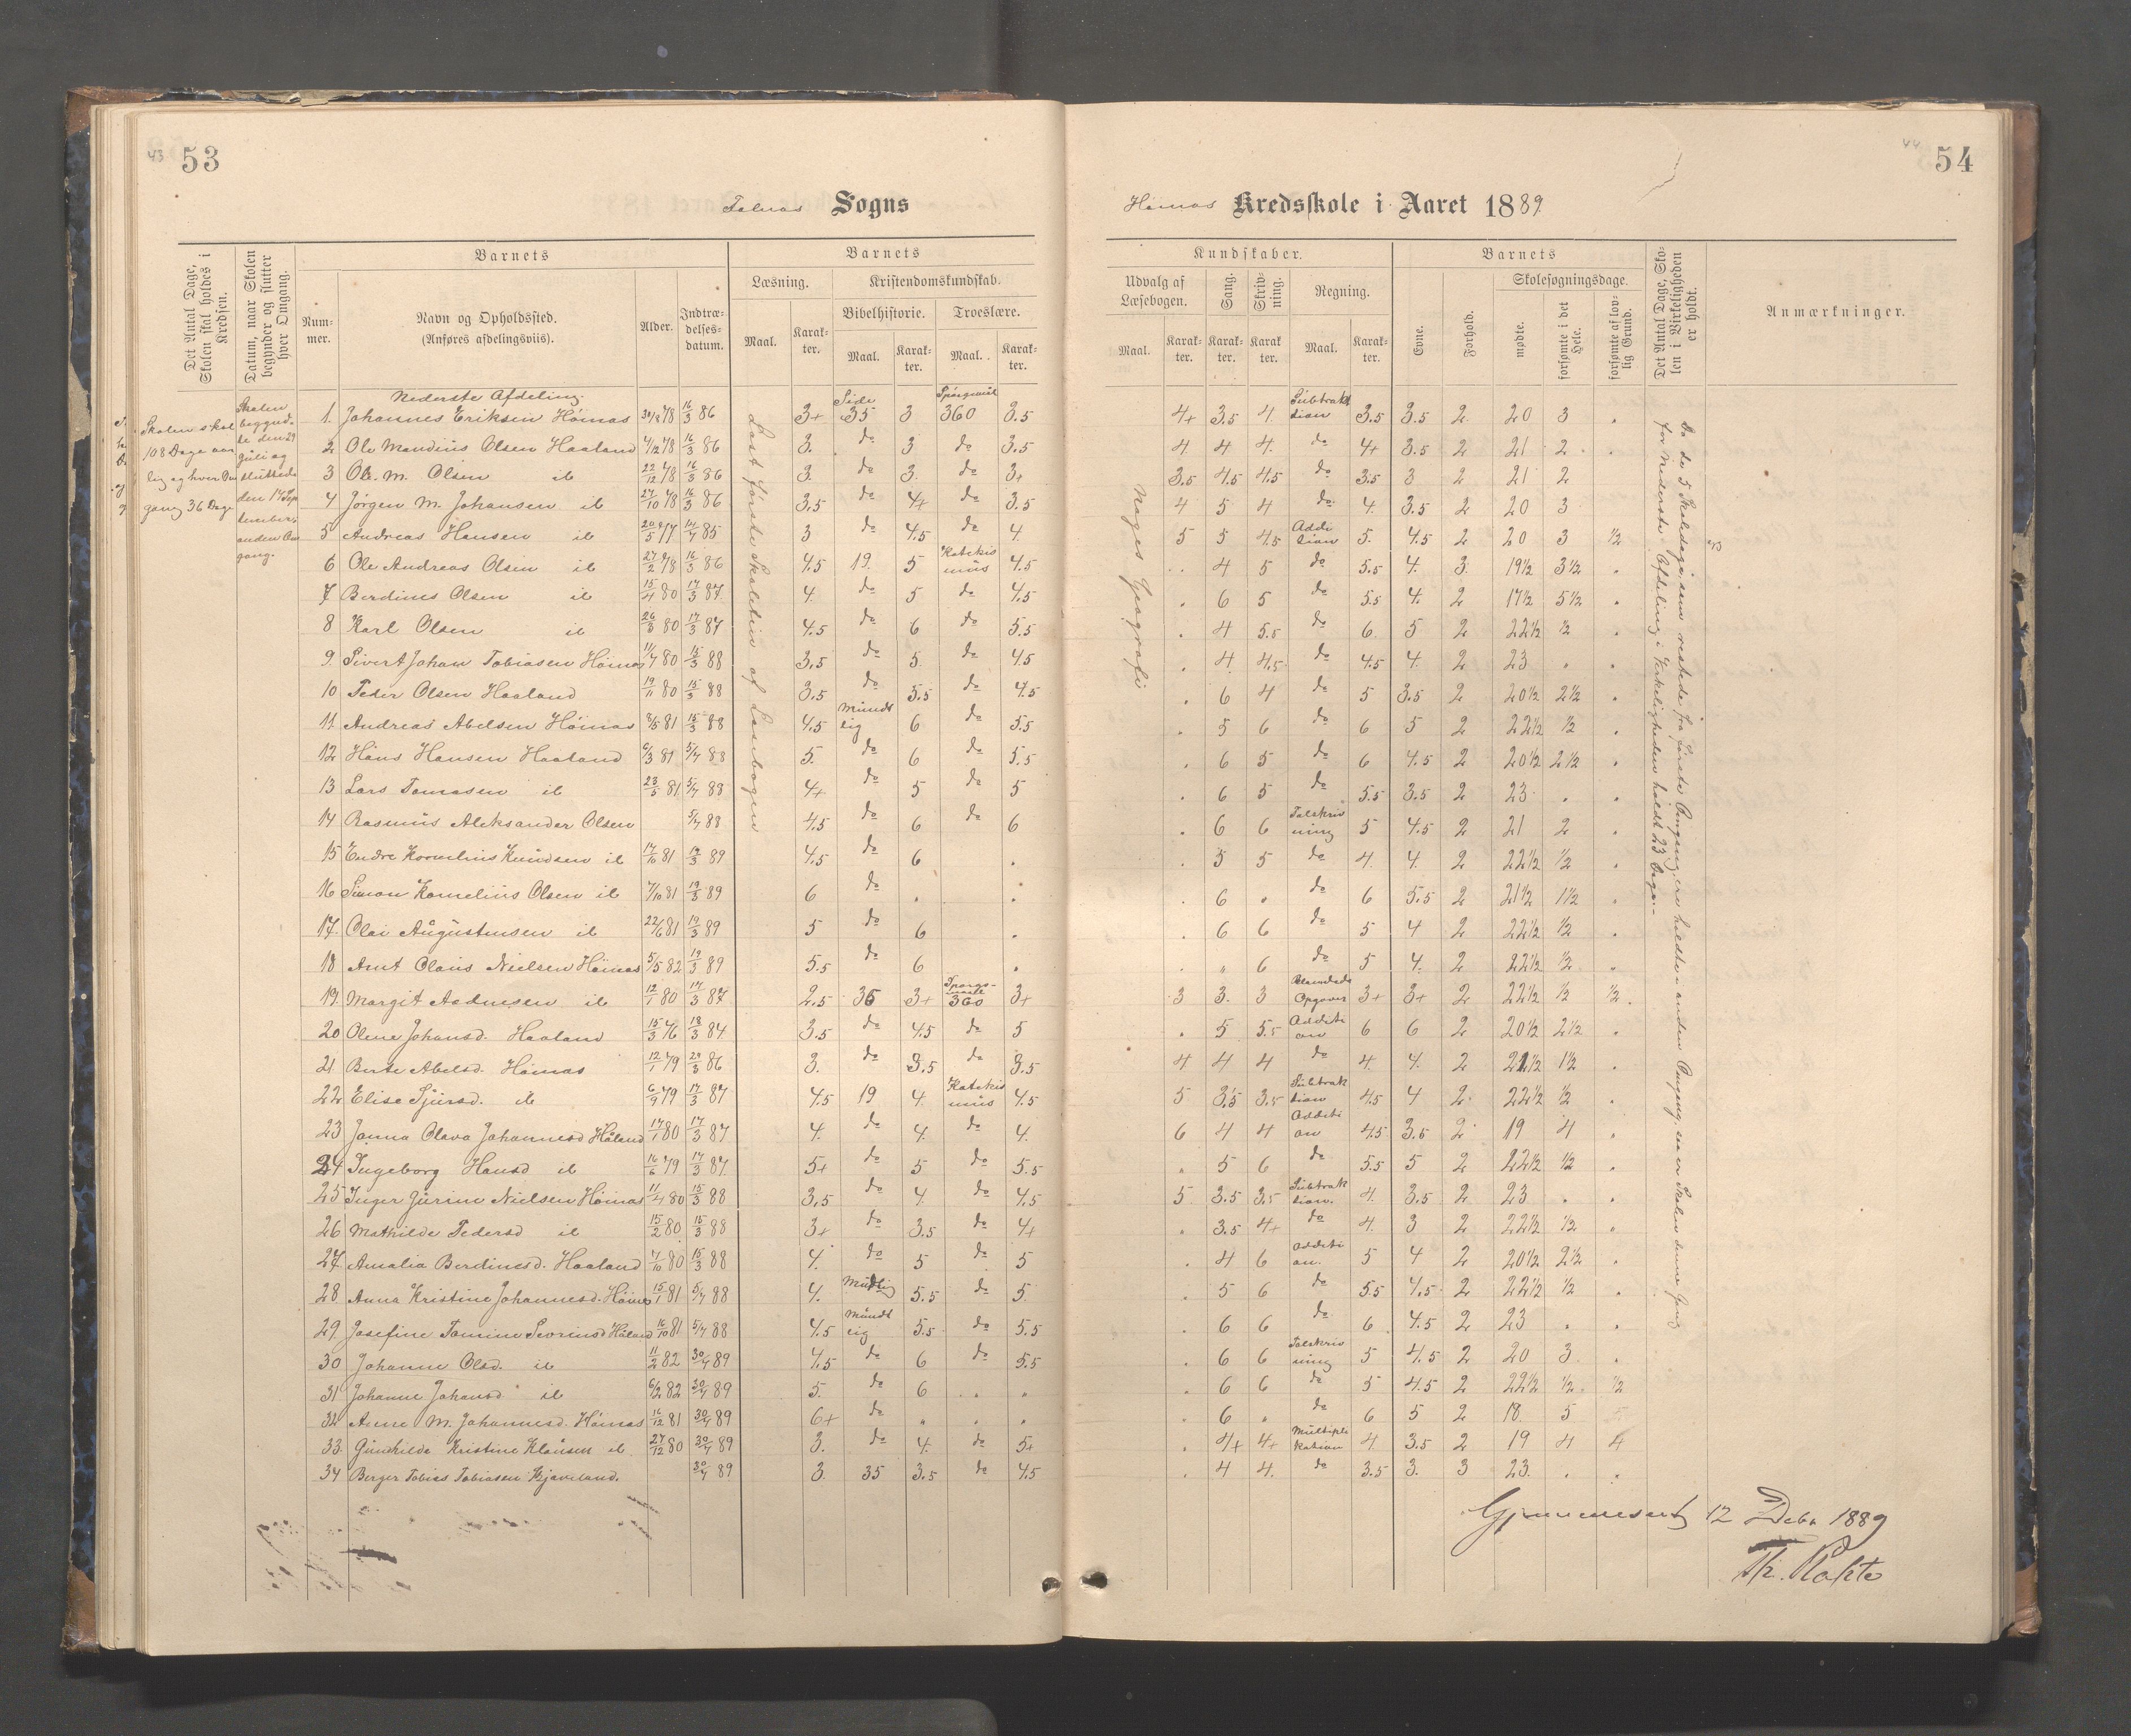 53
Sogns
Det Antal Dage, Skolen skal holdes i Kredsen.
Datum, naar Skolen begynder og slutter hver Omgang.
Barnets
Num-mer.
Navn og Opholdssted.
(Anføres afdelingsviis).
Alder.
Indtræ-delses-datum.
Barnets
Læsning.
Kristendomskundskab.
Maal.
Karak-ter.
Bibelhistorie.
Troeslære.
Maal.
Karak-ter.
Maal.
Karak-ter.
Skolen skal
108 Dage aar
gang 36 Dage
Skolen
den 29
Juli og
sluttede
anden Om
gang.
Læst første Skoletrin af Læsebogen
Nederste Afdeling.
1. Johannes Eriksen Höinæs 30/8 78 16/3 86 3+ Side 35 3 Spörgsmål 360 3.5
2 Ole Mandius Olsen Haaland 4/12 78 16/3 86 3. do 3 do 3.5
3 Ole. M. Olsen ib 22/12 78 16/3 86 3. do 3. do 3+
4 Jørgen M. Johansen ib 27/10 78 16/3 86 3.5 do 4+ do 3.5
5 Andreas Hansen ib 20/5 77 14/7 85 3 do 4.5 do 4.
6 Ole Andreas Olsen ib 27/2 78 16/3 86 4.5 19. 5 Katekismus 4.5
7 Berdines Olsen ib 15/4 80 17/3 87 4. do 5 do 4.5
8 Karl Olsen ib 26/3 80 17/3 87 4.5 do 6 do 5.5
9. Sivert Johan Tobiasen Höinæs 11/7 80 15/3 88 3.5 do 5. do 4.5
10 Peder Olsen Haaland 19/11 80 15/3 88 3.5 do 5.5 do 4.5
11. Andreas Abelsen Höinæs 8/5 81 15/3 88 4.5 Mundtlig 6 do 5.5
12 Hans Hansen Haaland 6/3 81 5/7 88 5. do 6 do 5.5
13 Lars Tomasen ib 23/5 81 5/7 88 4+ do 5 do 5
14 Rasmus Aleksander Olsen 5/7 88 4.5 do 6 do 6
15 Endre Kornelius Knudsen ib 17/10 81 19/3 89 4.5 do 6 .
16 Simon Kornelius Olsen ib 7/10 81 19/3 89 6 do . .
17. Olai Augustinsen ib 22/6 81 19/3 89 5 do 6 .
18 Arnt Olaus Nielsen Höinæs 5/5 82 19/3 89 5.5 do 6 .
19. Margit Aadnesen ib 12/1 80 17/3 87 2.5 36 3+ Spørgsmaal 360 3+
20 Olene Johansd. Haaland 15/3 76 18/3 84. 3.5 do 4.5 do 5
21 Berte Abelsd. Höinæs 12/1 79 29/3 86 3. do 3.5 do 3.5
22 Elise Sjursd. ib 6/9 79 17/3 87 4.5 19 4. Katekismus 4.5
23 Janna Olava Johannesd Håland 17/1 80 17/3 87 4. do 4. do 4.
24 Ingeborg Hansd ib 16/6 79 17/3 87. 5+ do 5 do 5.5
25 Inger Jurine Nielsen Höinæs 11/4 80 15/3 88 3.5 do 4. do 4.5
26 Mathilde Pedersd ib 15/2 80 15/3 88 3+ do 3.5 do 4+
27. Amalia Berdinesd. Haaland 4/10 80 15/3 88 4. do 5 do 5
28 Anna Kristine Johannesd. Höinæs 15/1 81 5/7 88 4. Mudtlig 5.5 do 5
29. Josefine Tomine Severinsd Håland 16/10 81 5/7 88 4.5 Mundtlig 5.5 do 5.5
30 Johanne Olsd. ib 11/2 82 30/4 89 4.5 do 6 do 5.5
31 Johanne Johansd ib 6/2 82 30/4 89 5. do 6 . .
32 Anne M. Johannesd. Höinæs 16/12 81 30/4 89 6+ do . . .
33. Gunhilde Kristine Klausen ib 27/12 80 30/4 89 3. do 4. do 5+
34 Berger Tobias Tobiasen Kjaveland. 30/4 89 3. 35 3.5 do 4.5
54
Kredsskole i Aaret 1889.
Kundskaber.
Udvalg af Læsebogen.
Sang.
Skriv-ning.
Regning.
Maal.
Karak-ter.
Karak-ter.
Karak ter.
Maal.
Karak-ter.
Barnets
Evne.
Forhold.
Skolesøgningsdage.
mødte.
forsømte i det Hele.
forsømte af lov-lig Grund.
Det Antal Dage, Sko-len i Virkeligheden er holdt.
Anmærkninger.
Norges Geografi
4+ 3.5 4. Subtraktion 3.5 3.5 2. 20 3 .
4 4 4. do 4+ 3.5 2 21 2 .
3.5 4.5 4.5 do 3.5 3 2 21 2
4 5 4 do 4. 3.5 2 20 3
5 5 4.5 Addition 5. 4.5 2 20 3 1/2
. 4 5 do 5.5 4. 3. 19 1/2 3 1/2 .
. 6 5 do 5.5 4. 2 17 1/2 5 1/2 .
. 4 5.5 do 6. 5 2 22 1/2 1/2 .
. 4 4.5 do 4.5 4. 2 23 . .
. 6 4 do 5 3.5 2 20 1/2 2 1/2 .
. 5 6 do 6 5 2 22 1/2 1/2 .
. 6 5 do 6 4.5 2 20 1/2 2 1/2 .
. 6 5 do 5.5 3.5 2 23 . .
. 6 6 Talskrivning 5 4.5 2 21 2 .
. 5 5 do 4. 4. 2 22 1/2 1/2 .
. 6 . do 6 5.5 2 21 1/2 1 1/2 .
. 6 6 do 5 4 2 22 1/2 1/2 .
. " 6 do 5 4. 2 22 1/2 1/2 .
3 3. 3 Blandede Opgaver 3+ 3+ 2 22 1/2 1/2 1/2.
. 5 5.5 Addition 6 6 2 20 1/2 2 1/2 .
4 4 4 do 4. 4. 2 21 1/2 1 1/2 .
5 3.5 3.5 Subtraktion 4.5 4 2. 22 1/2 1/2 .
6 4 4 Addition 4.5 3.5 2. 19 4 .
. 5 6 do 5.5 5 2 22 1/2 1/2 .
5. 3.5 3.5 Subtraktion. 4. 3.5 2 23 . .
. 3.5 4+ do 4. 3 2 22 1/2 1/2 .
. 4 6 Addition. 5 4 2 20 1/2 2 1/2 .
. 5 6 do 5.5 4.5 2 22 1/2 1/2 .
. 6 6 do 6 4.5 2 23 . .
. 6 6 Talskrivning 5 4.5 2 20 3 .
. 6 6 do 5 4.5 2 22 1/2 1/2. 1/2
. 6 . do 6 5 2 18. 5
. 4+ 4+ Multiplikation 4. 3.5 2 19 4 4
. 4 4. do 3.5 3. 3 23. . .
Da de 5 Skoledage, som restede fra første Omgang, ere holdte i anden Omgang, saa er Skolen denne Gang
for nederste Afdeling i Virkeligheden holdt 23 Dage.–
Gjennemseet 12 Debr 1889